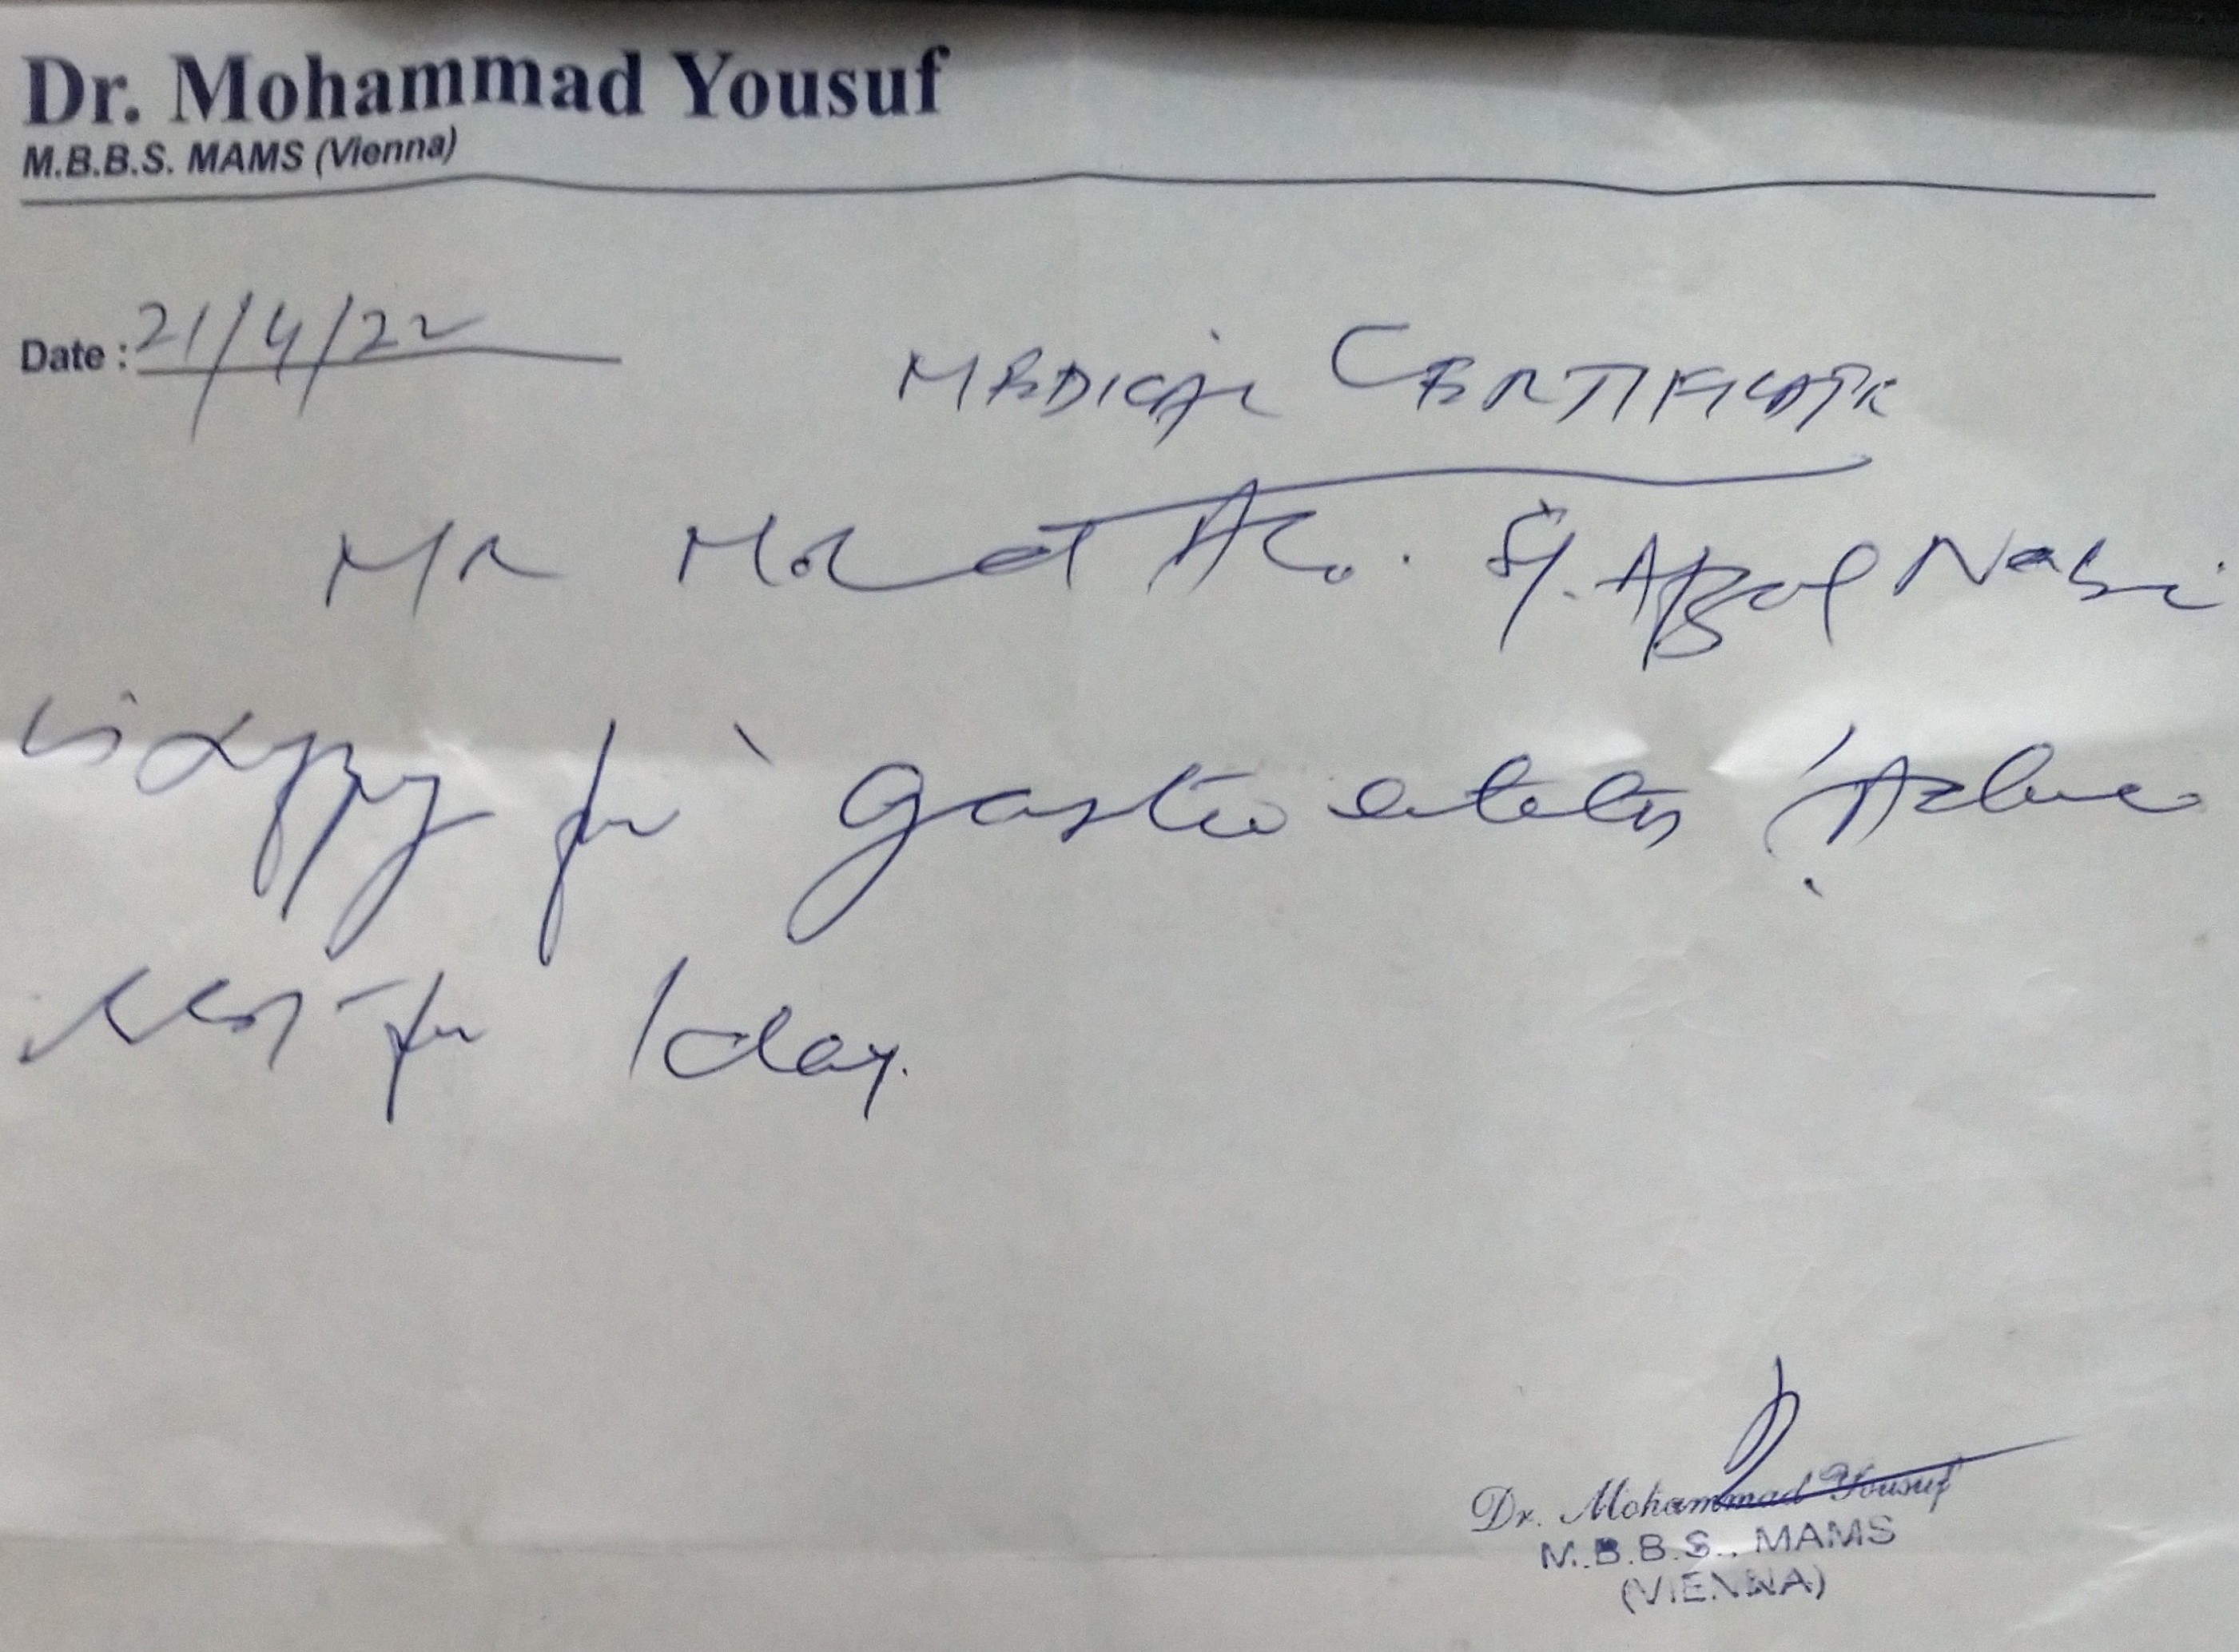 Dr. Mohammad Yousuf
M.B.B.S. MAMS (Vienna)
Date : 21/4/22
MEDICAL CERTIFICATE
Mr Mohd S/. Afzal Nabi
is for gastro Advice
rest for 1 day.
Dr. Mohammad Yousuf
M.B.B.S., MAMS
(VIENNA)